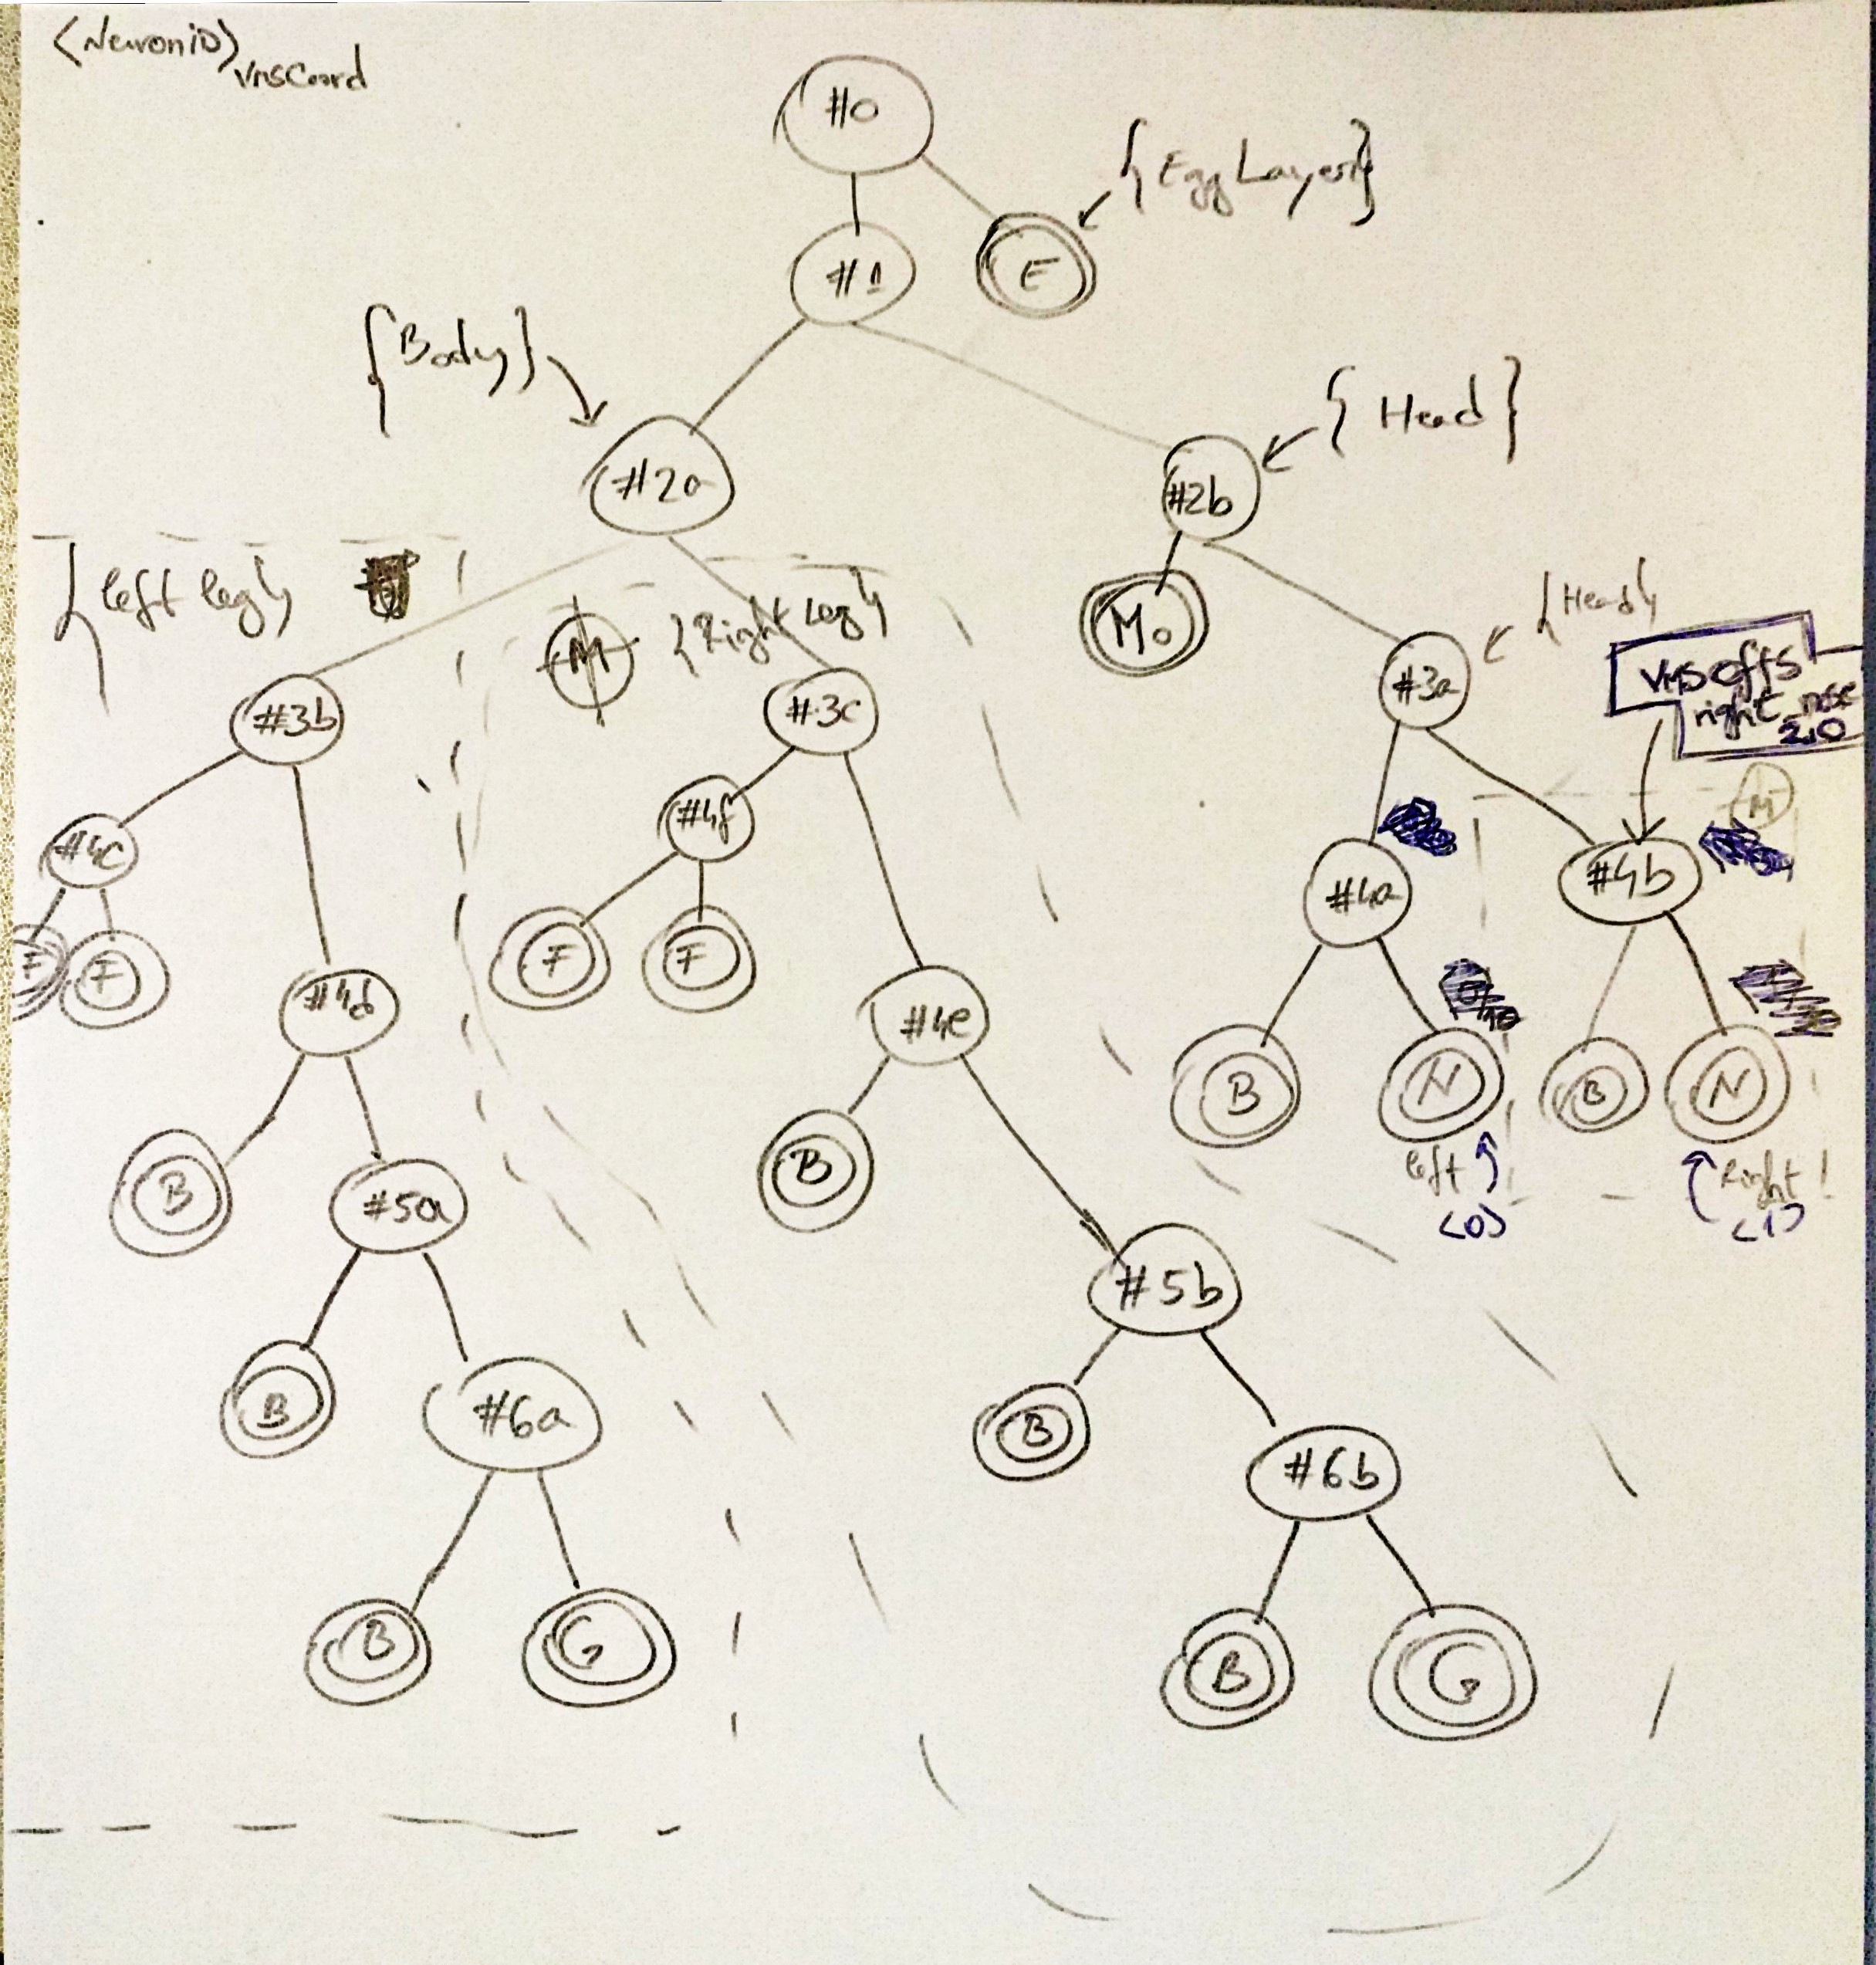 <NeuroniD>
VnsCoord
#0
{EggLayer}
#1
E
{Body}
{Head}
#2a
#2b
{left leg}
M
{Right Leg}
Mo
{Head}
#3b
#3c
#3a
VMSoffs
right nose
2,0
M
#4c
#4f
#4a
#4b
F
F
F
F
#4d
#4e
B
N
B
N
left
<0>
Right
<1>
B
#5a
B
#5b
B
#6a
B
#6b
B
G
B
G